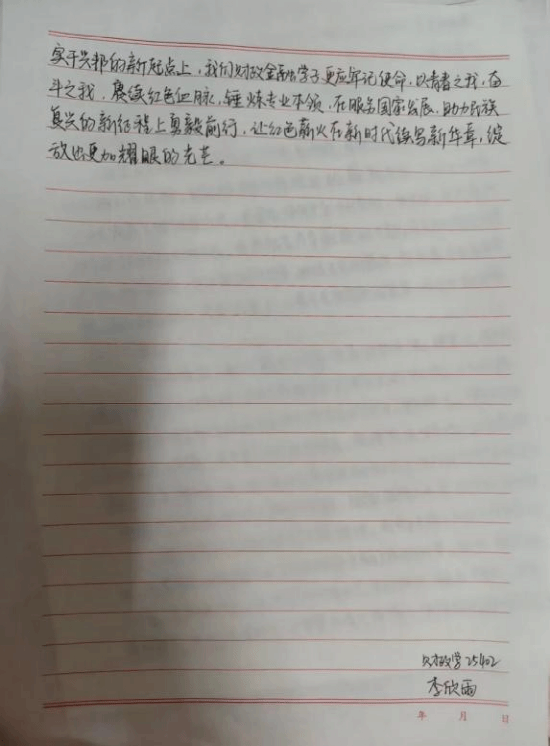 实干兴邦的新起点上，我们财政金融学子更应牢记使命，以青春之我，奋
斗之我，赓续红色血脉，锤炼专业本领，在服务国家发展、助力民族
复兴的新征程上勇毅前行，让红色薪火在新时代续写新华章，绽
放出更加耀眼的光芒。
财政学25402
李欣雨
年 月 日